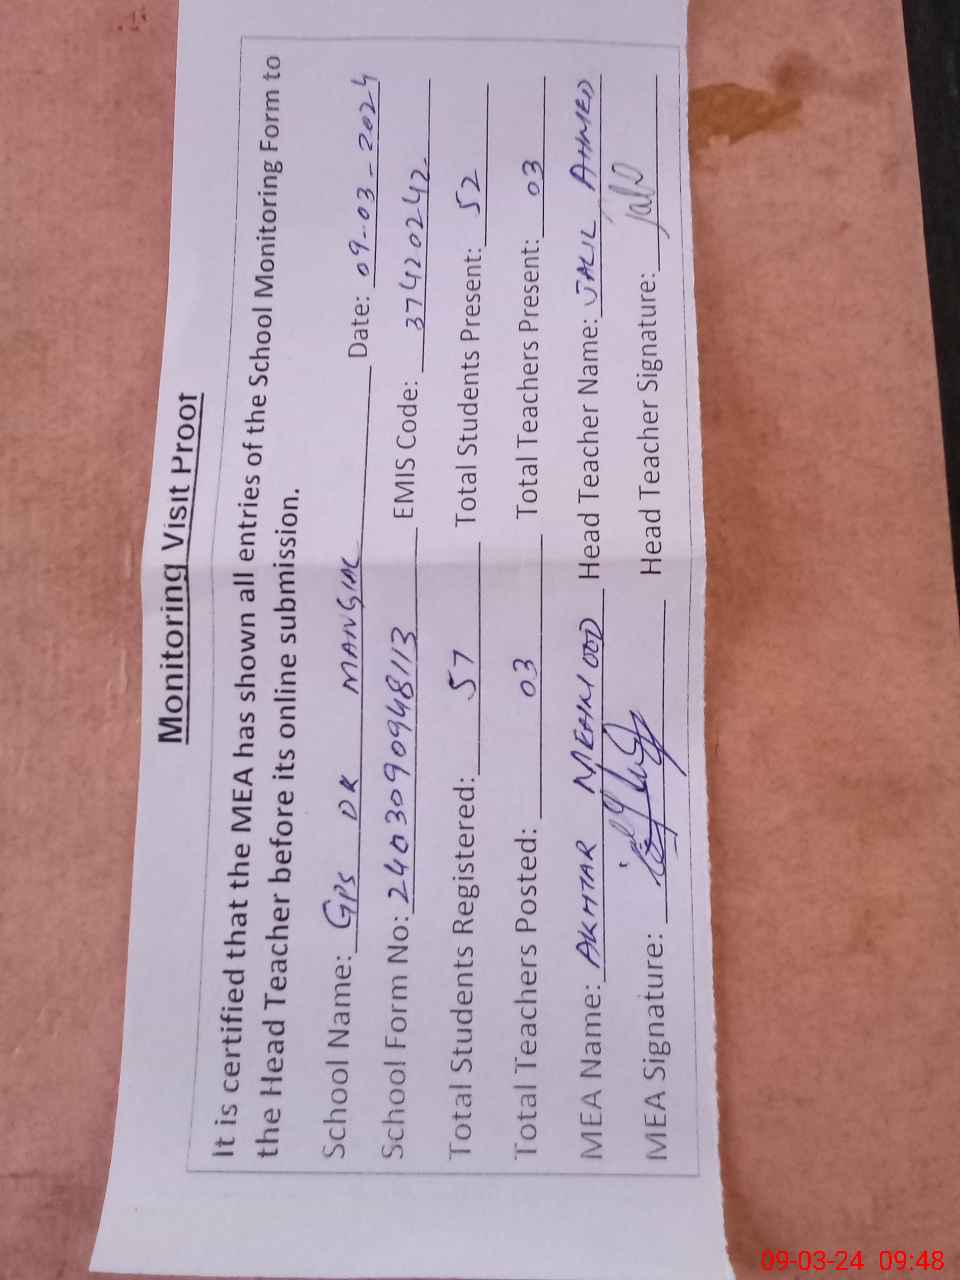 Monitoring Visit Proof
It is certified that the MEA has shown all entries of the School Monitoring Form to
the Head Teacher before its online submission.
School Name: GPS DK MANGIAL Date: 09-03-2024
School Form No: 2403090948113 EMIS Code: 37420242
Total Students Registered: 57 Total Students Present: 52
Total Teachers Posted: 03 Total Teachers Present: 03
MEA Name: AKHTAR MEHMOOD Head Teacher Name: JALIL AHMED
MEA Signature: Head Teacher Signature:
09-03-24 09:48